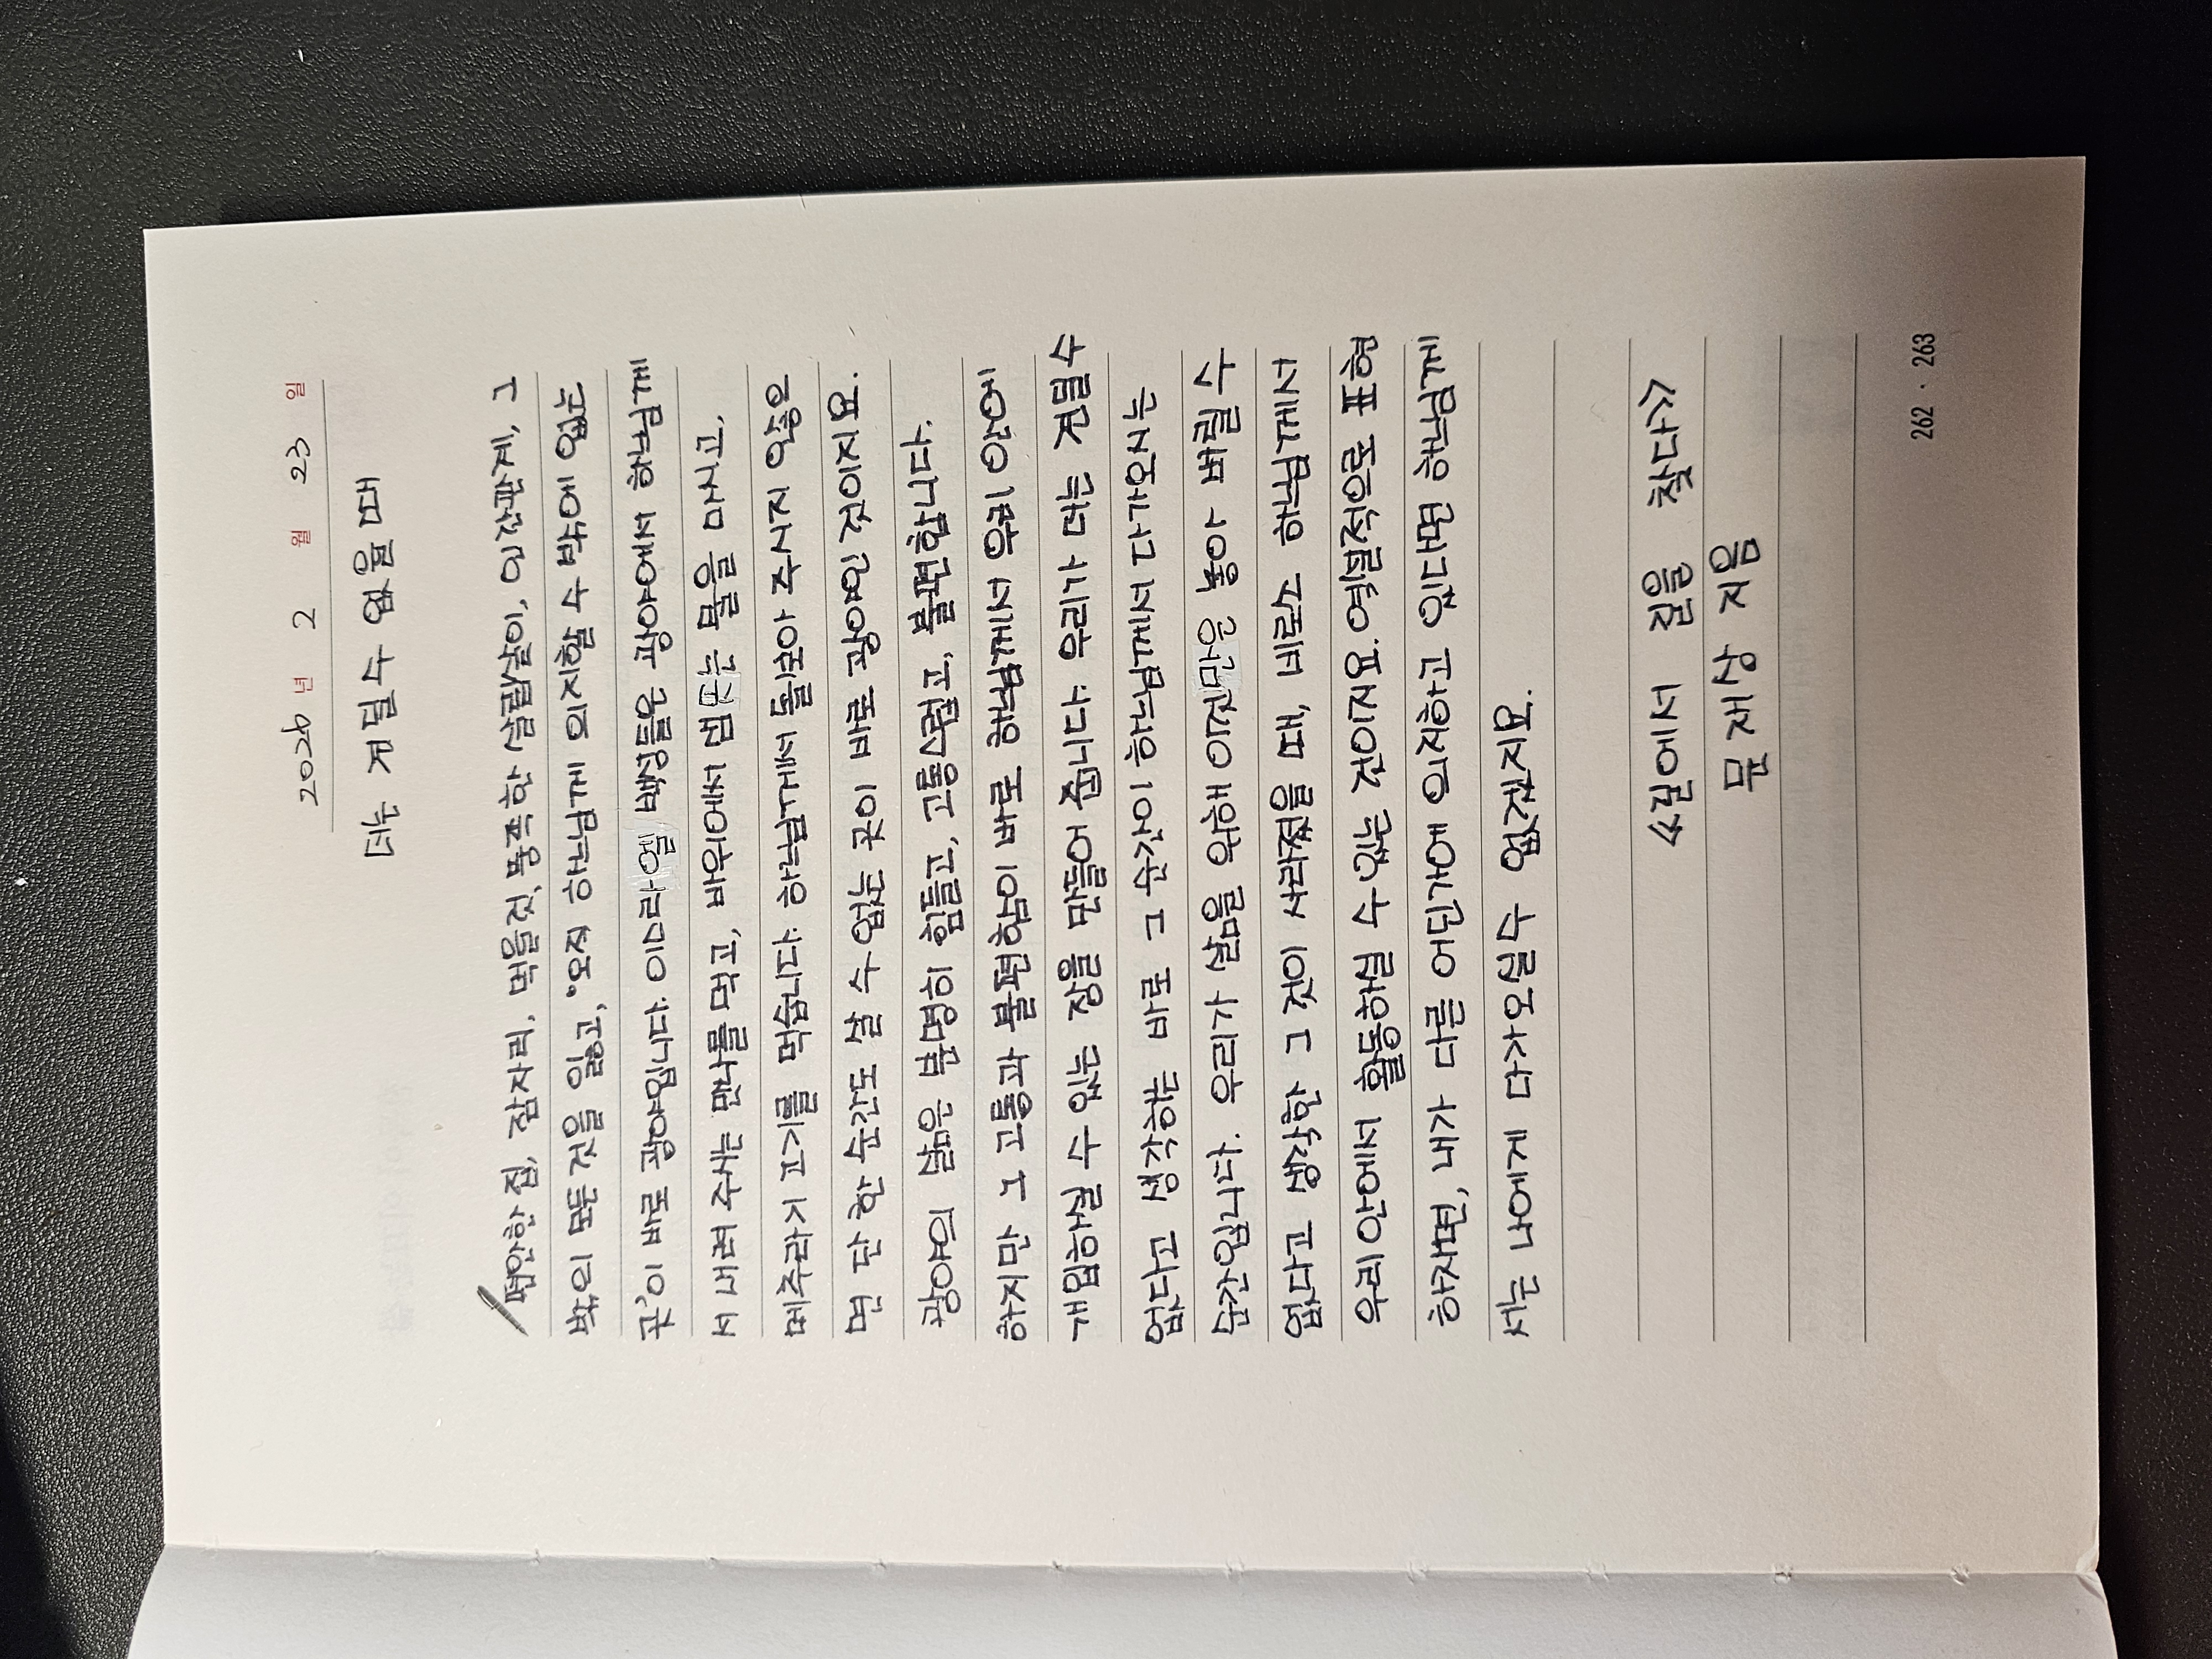 2024 년 2 월 23 일
더는 견딜 수 없을 때
편안한 집, 잠자리, 먹을것, 풍족한 살림살이, 인간관계, 그
밖의 모든 것을 잃고, '오직 하느님께 의지할 수 밖에 없는
곳'이 바로 광야입니다. 이스라엘 백성들은 광야에서 하느님께
서 내려 주시는 만나를 먹고, 바위에서 나오는 물을 마시고,
메추라기 고기를 먹습니다. 하느님께서 돌보아 주시지 않으
면 단 한 순간도 살 수 없는 곳이 바로 광야였던 것이지요.
광야의 삶은 분명히 힘들고, 고통스럽고, 불편합니다.
하지만 그 고통과 불편함이 바로 하느님께서 우리 안에
개입하실 수 있는 장을 만들어 줍니다. 우리가 더는 견딜수
없다고 생각하는 바로 그 순간이 하느님께서 다가오시는
순간입니다. 우리가 삶을 위해 이것만은 놓아 버릴 수
없다고 생각한 그 것이 사라졌을 때, 비로소 하느님께서
우리 안에서 활동하실 수 있는 것이지요. 역설적으로 표현
하자면, 내가 다른 어딘가에 의지하고 있다면 하느님께
서는 나에게 다가오실 수 없겠지요.
<<길에서 길을 찾다>>
문 재상 지음
262 · 263